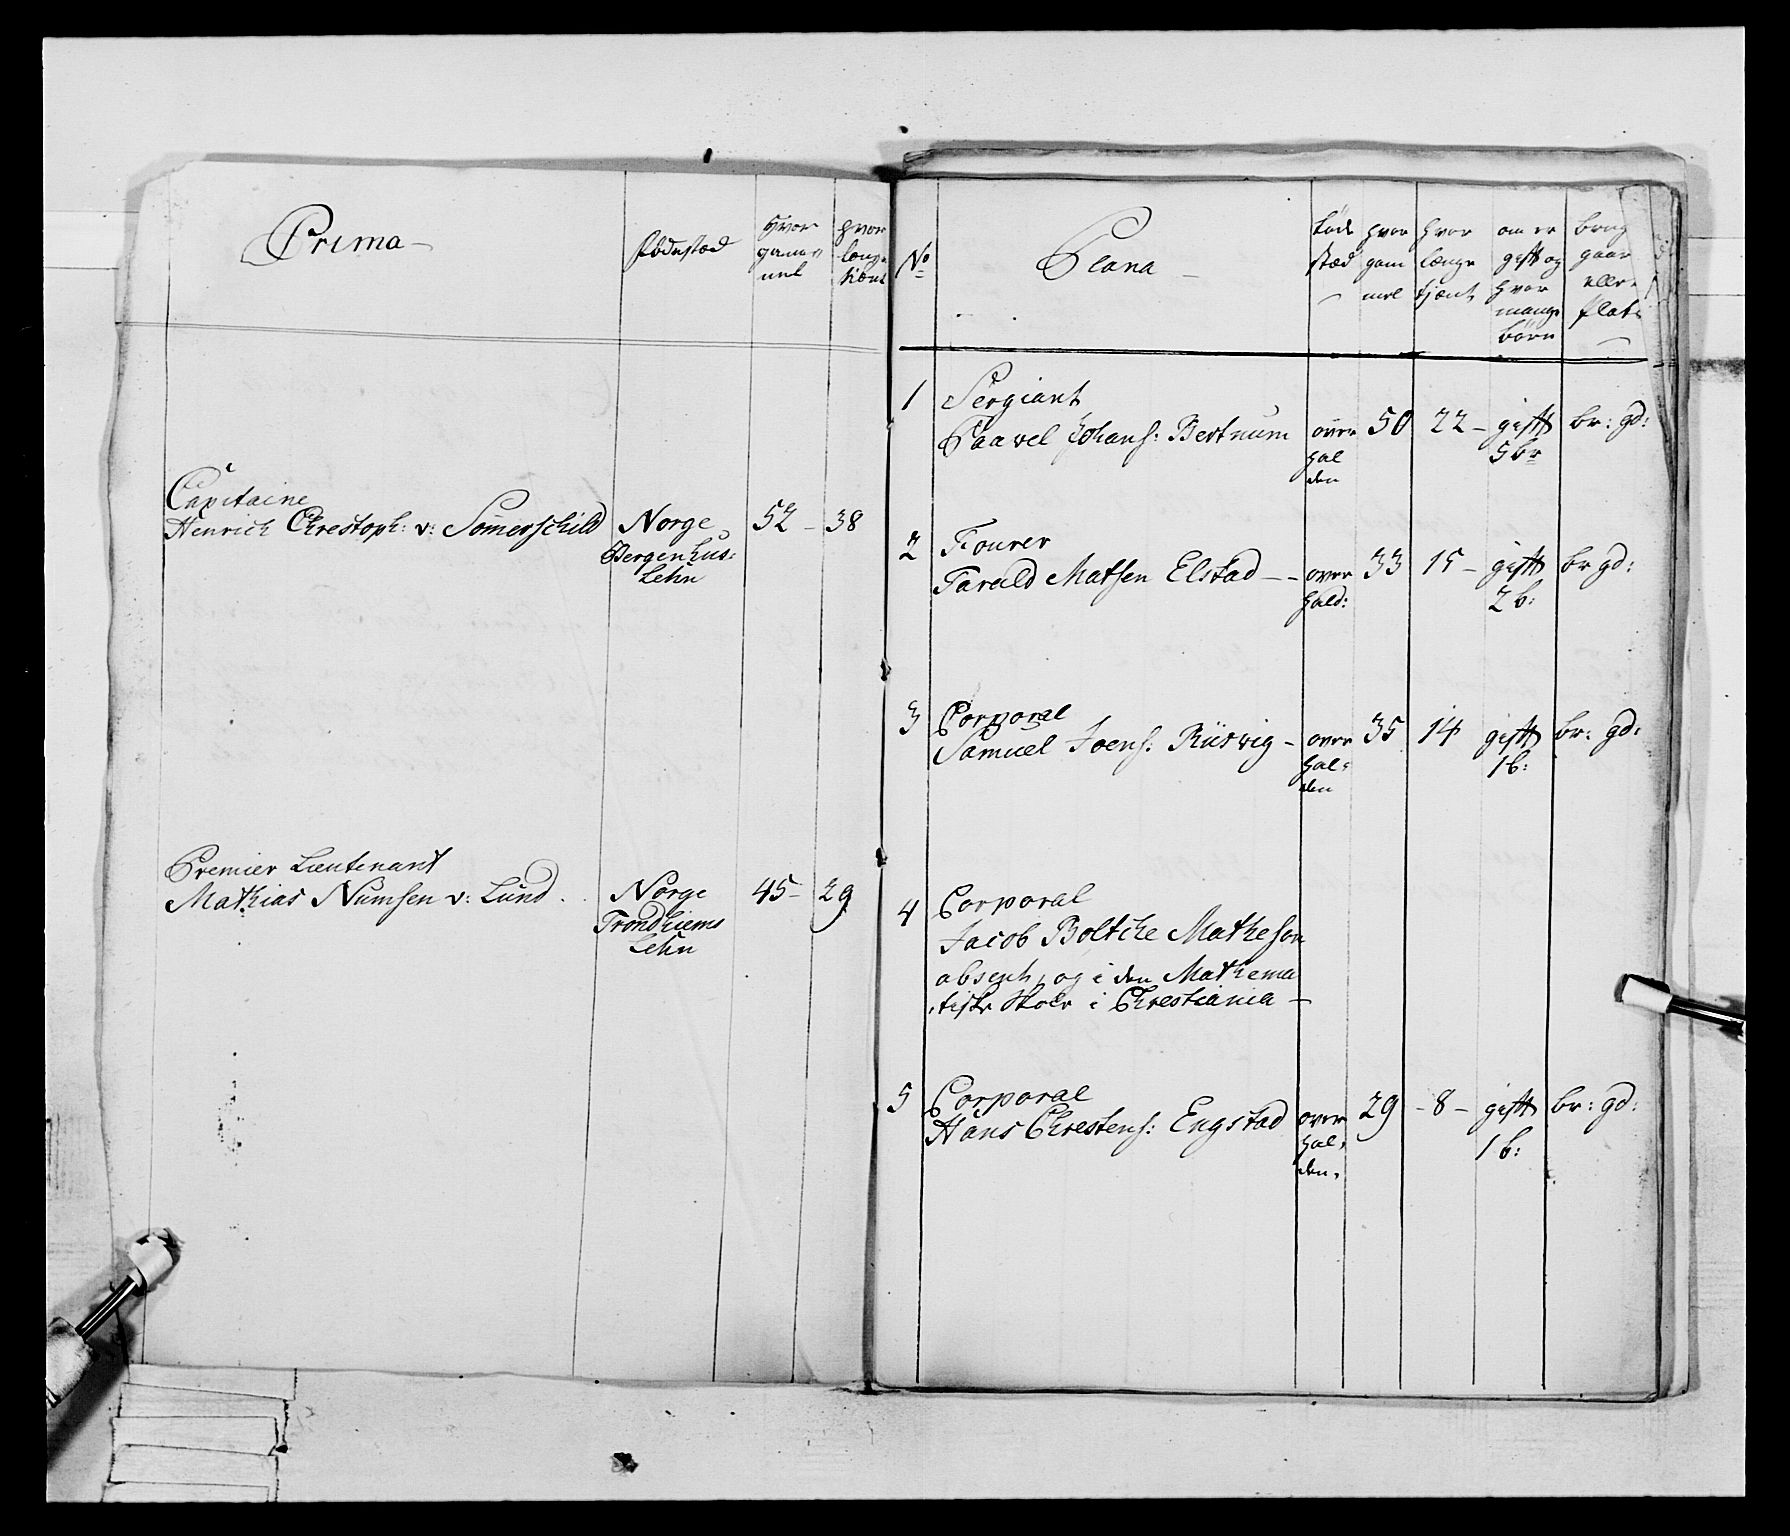 Prima
Födestæd
Hvor
gam¬
mel
hvor
længe
tient
Capitaine
Henrich Chrestoph: v: Sömerschild
Norge
Bergenhus:
Lehn
52 - 38
Premier Lieutenant
Mathias Numsen v: Lund
Norge
Trondhiems
Lehn
45 - 29
No
Plana
föde
stæd
hvor
gam
mel
hvor
længe
tjent
om er
gift og
hvor
mange
börn
brug
gaar
eller
plats
1 Sergiant
Paavel Johans: Bertnum
over
hal
den
50 22 - gift br: gd:
5 br
2 Fourer
Tarald Matsen Elstad - -
over
hald:
33 15 - gift br gd:
2 b:
3 Corporal
Samuel Joens: Rüsvig -
over
hal:
den
35 14 gift br: gd:
1 b:
4 Corporal
Jacob Boltche Matheson
absent, og i den Mathema
tiske Skole i Chrestiania -
5 Corporal
Hans Chrestens: Engstad
over
hal:
den.
29 - 8 - gift br: gd:
1 b: